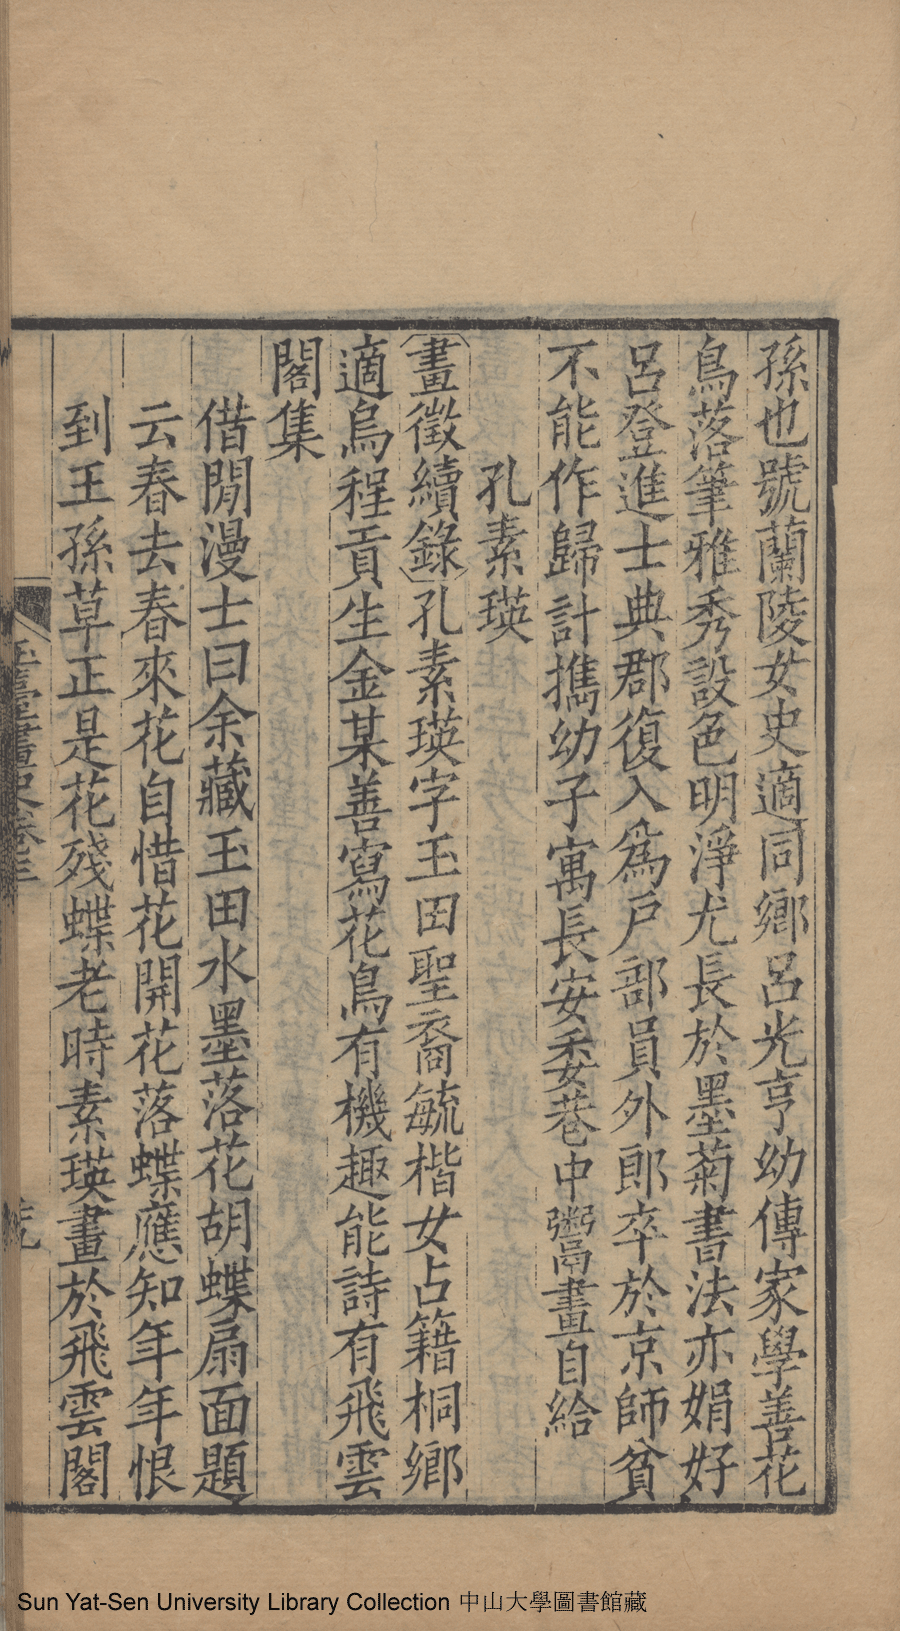 孫也號蘭陵女史適同鄉呂光亨幼傳家學善花
鳥落筆雅秀設色明淨尤長於墨菊書法亦娟好
呂登進士典郡復入爲戶部員外郎卒於京師貧
不能作歸計攜幼子寓長安委巷中鬻畫自給
孔素瑛
畫徵續錄孔素瑛字玉田聖裔毓楷女占籍桐鄉
適烏程貢生金某善寫花鳥有機趣能詩有飛雲
閣集
借閒漫士曰余藏玉田水墨落花胡蝶扇面題
云春去春來花自惜花開花落蝶應知年年恨
到王孫草正是花殘蝶老時素瑛畫於飛雲閣
玉臺畫史卷三
Sun Yat-Sen University Library Collection 中山大學圖書館藏